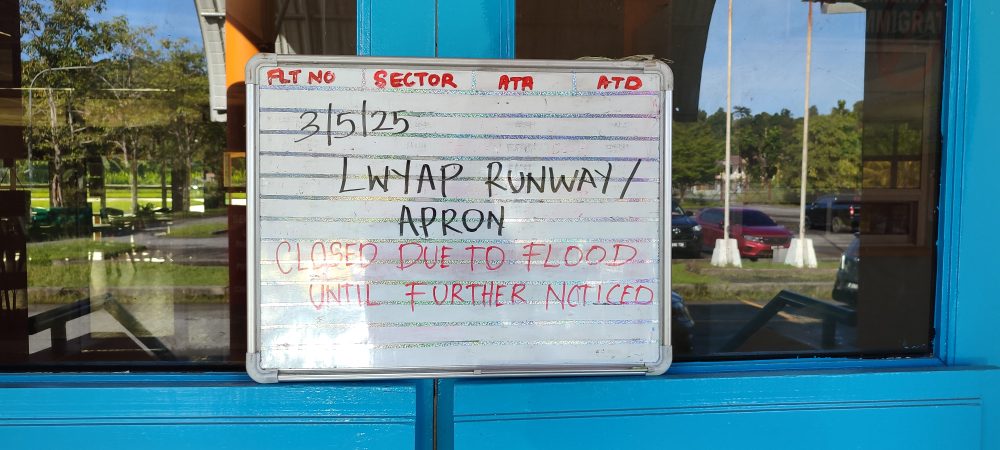 FLT NO SECTOR ATA ATD
3/5/25
LWYAP RUNWAY/
APRON
CLOSED DUE TO FLOOD
UNTIL FURTHER NOTICED